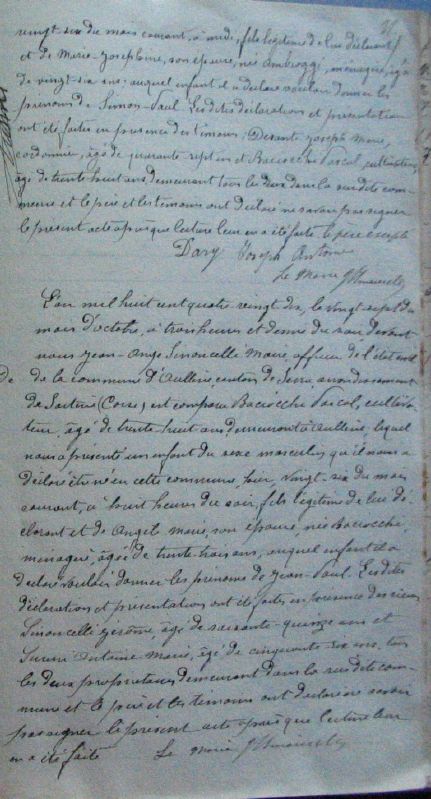 vingt six du mois courant, à midi, fils légitime de lui déclarant
et de Marie-Josephine, son épouse, née Ambroggi, ménagère, âgée
de vingt-six ans; auquel enfant il a déclaré vouloir donner les
prénoms de Simon-Paul. Les dites déclarations et présentation
ont été faites en présence des témoins; Desanti Joseph Marie,
cordonnier, âgé de quarante sept ans et Baciocchi Pascal, cultivateur,
âgé de trente huit ans, demeurant tous les deux dans la susdite com-
mune et le père et les témoins ont déclaré ne savoir pas signer
le présent acte après que lecture leur en a été faite le père excepté
Joseph Antoine
Le Maire
L'an mil huit cent quatre-vingt dix, le vingt sept du
mois d'octobre, à trois heures et demie du soir devant
nous Jean-Ange Simoncelli Maire, officier de l'état civil
de la commune d'Aullène, canton de Serra arrondissement
de Sartène (Corse), est comparu Baciocchi Pascal, cultiva-
teur, âgé de trente-huit ans, demeurant à Aullène, lequel
nous a présenté un enfant du sexe masculin qu'il nous a
déclaré être né en cette commune, hier, vingt-six du mois
courant, à huit heures du soir, fils légitime de lui dé-
clarant et de Angèle Marie, son épouse, née Baciocchi,
ménagère, âgée de trente trois ans, auquel enfant il a
déclaré vouloir donner les prénoms de Jean-Paul. Les dites
déclarations et présentation ont été faites en présence des sieurs
Simoncelli Jérôme, âgé de soixante-quinze ans et
Antoine Marie, âgé de cinquante six ans, tous
les deux propriétaires demeurant dans la susdite com-
mune et le père et les témoins ont déclaré ne savoir
pas signer le présent acte après que lecture leur
en a été faite Le Maire